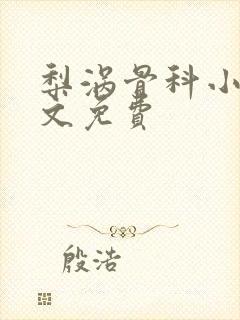 梨涡骨科小
文免費
殷浩